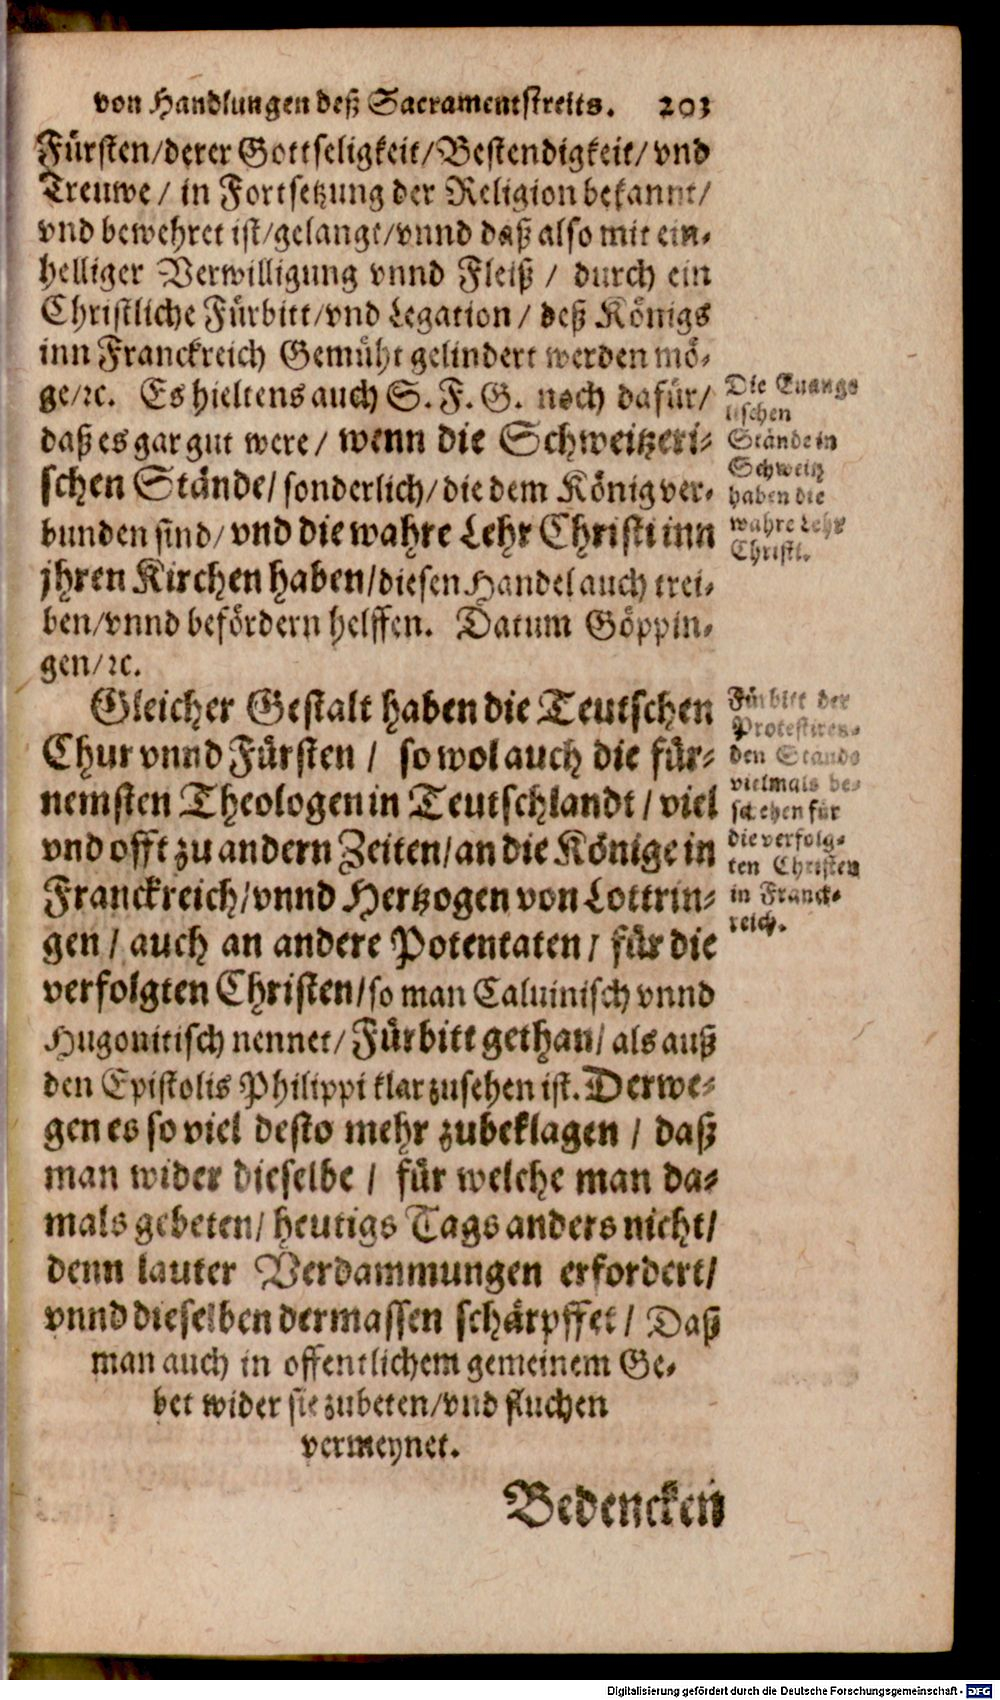 von Handlungen deß Sacramentstreits. 203
Fürsten/derer Gottseligkeit/Bestendigkeit/ vnd
Treuwe / in Fortsetzung der Religion bekannt/
vnd bewehret ist/gelange/vnnd daß also mit ein-
helliger Verwilligung vnnd Fleiß / durch ein
Christliche Fürbitt/vnd Legation / deß Königs
inn Franckreich Gemüht gelindert werden mö-
ge/ꝛc. Es hieltens auch S. F. G. noch dafür/
daß es gar gut were/ wenn die Schweitzeri-
schen Stände/ sonderlich/ die dem König ver-
bunden sind/ vnd die wahre Lehr Christi inn
jhren Kirchen haben/diesen Handel auch trei-
ben/vnnd befördern helffen. Datum Göppin-
gen/ꝛc.
Die Euange
lischen
Stände in
Schweitz
haben die
wahre Lehr
Christi.
Gleicher Gestalt haben die Teutschen
Chur vnnd Fürsten / so wol auch die für-
nemsten Theologen in Teutschlandt / viel
vnd offt zu andern Zeiten/an die Könige in
Franckreich/vnnd Hertzogen von Lottrin-
gen / auch an andere Potentaten / für die
verfolgten Christen/so man Caluinisch vnnd
Hugonitisch nennet/ Fürbitt gethan/ als auß
den Epistolis Philippi klar zusehen ist. Derwe-
gen es so viel desto mehr zubeklagen / daß
man wider dieselbe / für welche man da-
mals gebeten/ heutigs Tags anders nicht/
denn lauter Verdammungen erfordert/
vnnd dieselben dermassen schärpffet / Daß
man auch in offentlichem gemeinem Ge-
bet wider sie zubeten/vnd fluchen
vermeynet.
Fürbitt der
Protestiren-
den Stände
vielmals be-
schehen für
die verfolg-
ten Christen
in Franck-
reich.
Bedencken
Digitalisierung gefördert durch die Deutsche Forschungsgemeinschaft - DFG